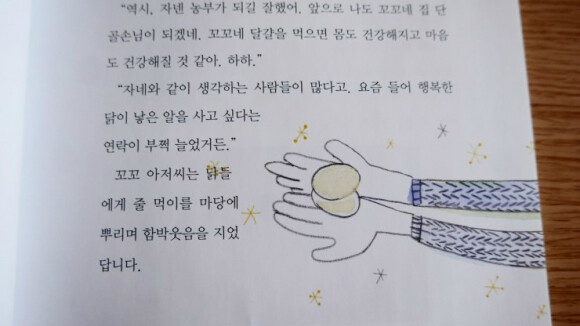 “역시. 자넨 농부가 되길 잘했어. 앞으로 나도 꼬꼬네 집 단
골손님이 되겠네. 꼬꼬네 달걀을 먹으면 몸도 건강해지고 마음
도 건강해질 것 같아. 하하.”
“자네와 같이 생각하는 사람들이 많다고. 요즘 들어 행복한
닭이 낳은 알을 사고 싶다는
연락이 부쩍 늘었거든.”
꼬꼬 아저씨는 닭들
에게 줄 먹이를 마당에
뿌리며 함박웃음을 지었
답니다.